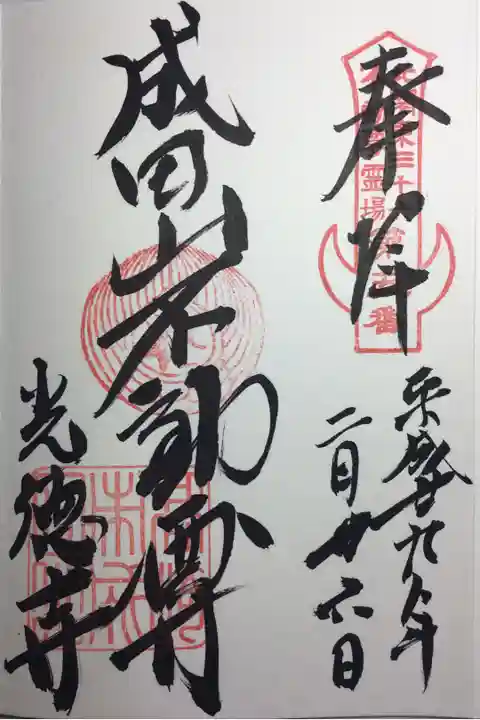 奉拝
平成廿九年
二月廿六日
成田山不動尊
光徳寺
霊場
番